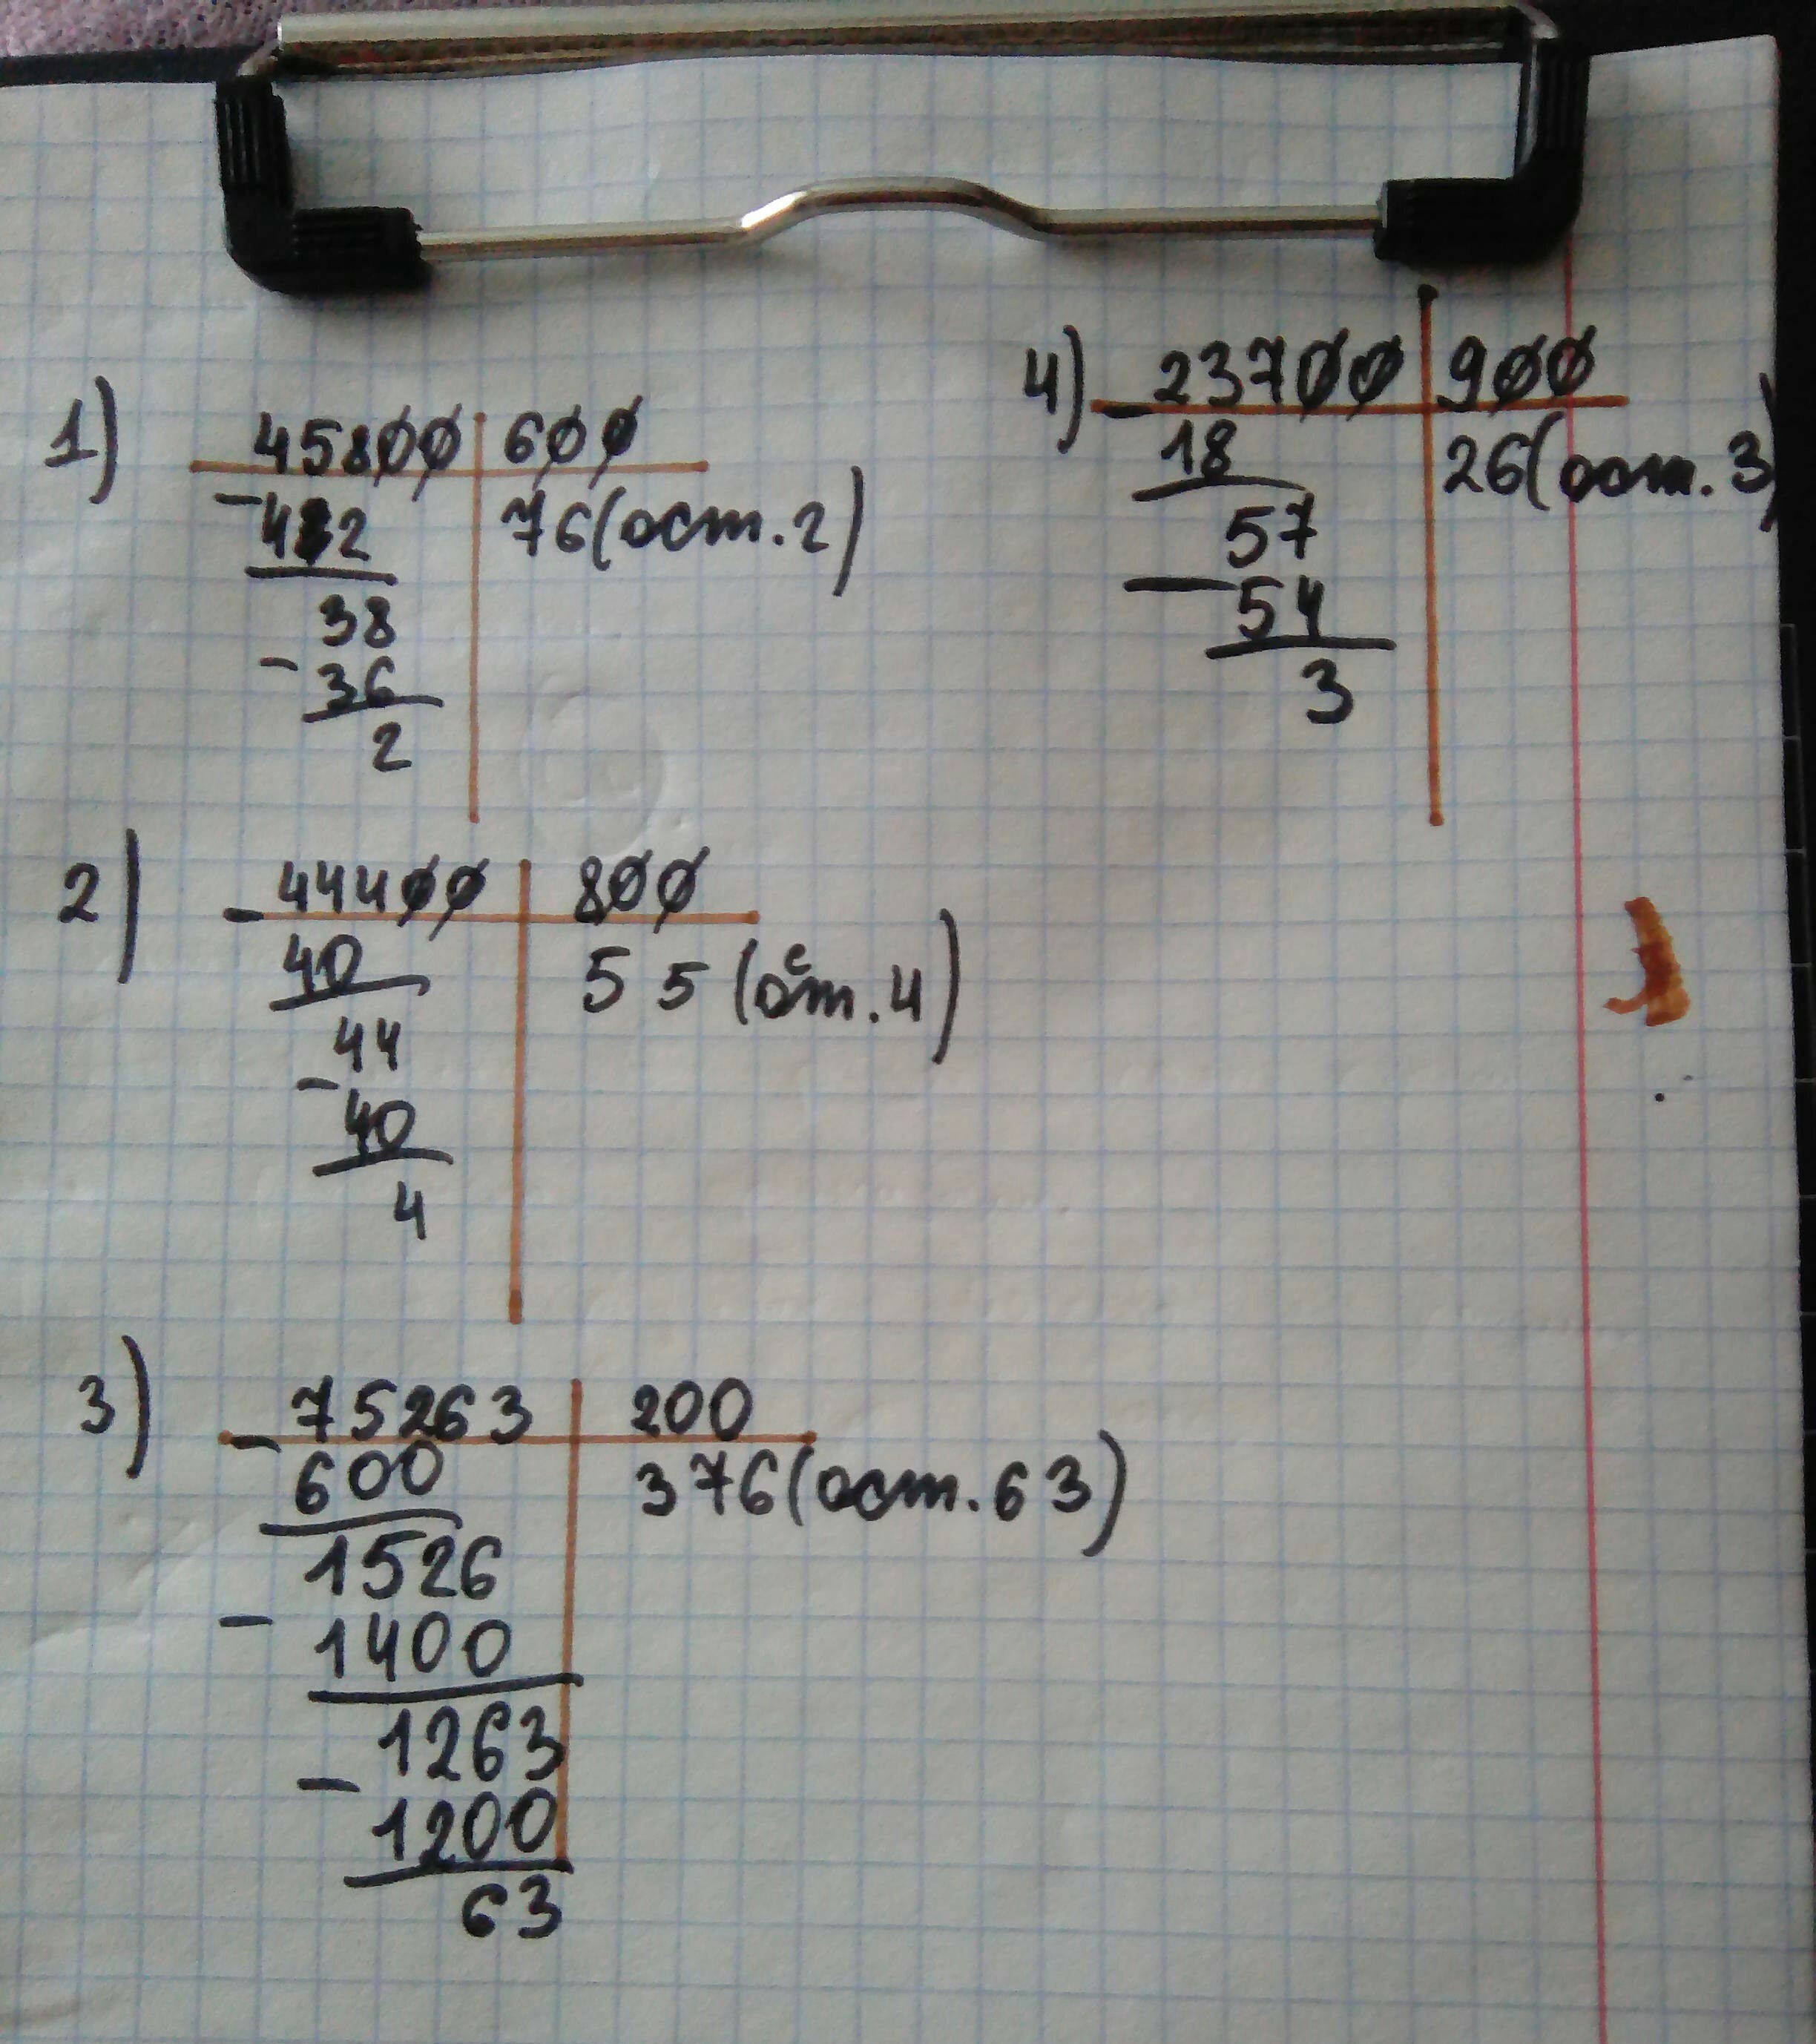 1) 45800 | 600
- 432 | 76(ост.2)
38
- 36
2
2) - 44400 | 800
40 | 55(ост.4)
44
- 40
4
3) - 75263 | 200
600 | 376(ост.63)
1526
- 1400
1263
- 1200
63
4) - 23700 | 900
18 | 26(ост.3)
57
- 54
3